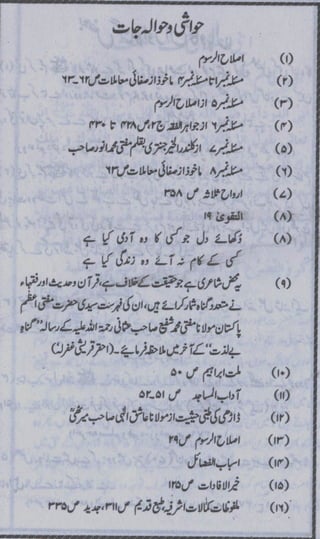 حواشی و حوالہ جات
(۱) اصلاح الرسوم
(۲) مسئلہ نمبر ۱ تا مسئلہ نمبر ۴ ماخوذ از صفائی معاملات ص ۶۲-۶۳
(۳) مسئلہ نمبر ۵ از اصلاح الرسوم
(۴) مسئلہ نمبر ۶ از جواہر الفقہ ج ۲، ص ۴۲۸ تا ۴۳۰
(۵) مسئلہ نمبر ۷ از کلندر الخیر جنتری بقلم مفتی محمد انور صاحب
(۶) مسئلہ نمبر ۸ ماخوذ از صفائی معاملات ص ۶۳
(۷) ارواح ثلاثہ ص ۳۵۸
(۸) التقویٰ ۱۹
(۸) دکھائے دل جو کسی کا وہ آدمی کیا ہے
کسی کے کام نہ آئے وہ زندگی کیا ہے
(۹) یہ محض شاعری ہے جو حقیقت کے خلاف ہے، قرآن و حدیث اور فقہاء
نے متعدد گناہ شمار کرائے ہیں، ان کی فہرست سیدی حضرت مفتی اعظم
پاکستان مولانا مفتی محمد شفیع صاحب عثمانی رحمۃ اللہ علیہ کے رسالہ "گناہ
بے لذت" کے آخر میں ملاحظہ فرمایئے۔ (احقر قریشی غفرلہ)
(۱۰) ملت ابراہیم ص ۵۰
(۱۱) آداب المساجد ص ۵۱-۵۲
(۱۲) داڑھی کی طبی حیثیت از مولانا عاشق الٰہی صاحب میرٹھیؒ
(۱۳) اصلاح الرسوم ص ۲۹
(۱۴) اسباب الفضائل
(۱۵) خیر الافادات ص ۱۲۵
(۱۶) ملفوظات کمالات اشرفیہ طبع قدیم ص ۳۱۱، جدید ص ۳۳۵